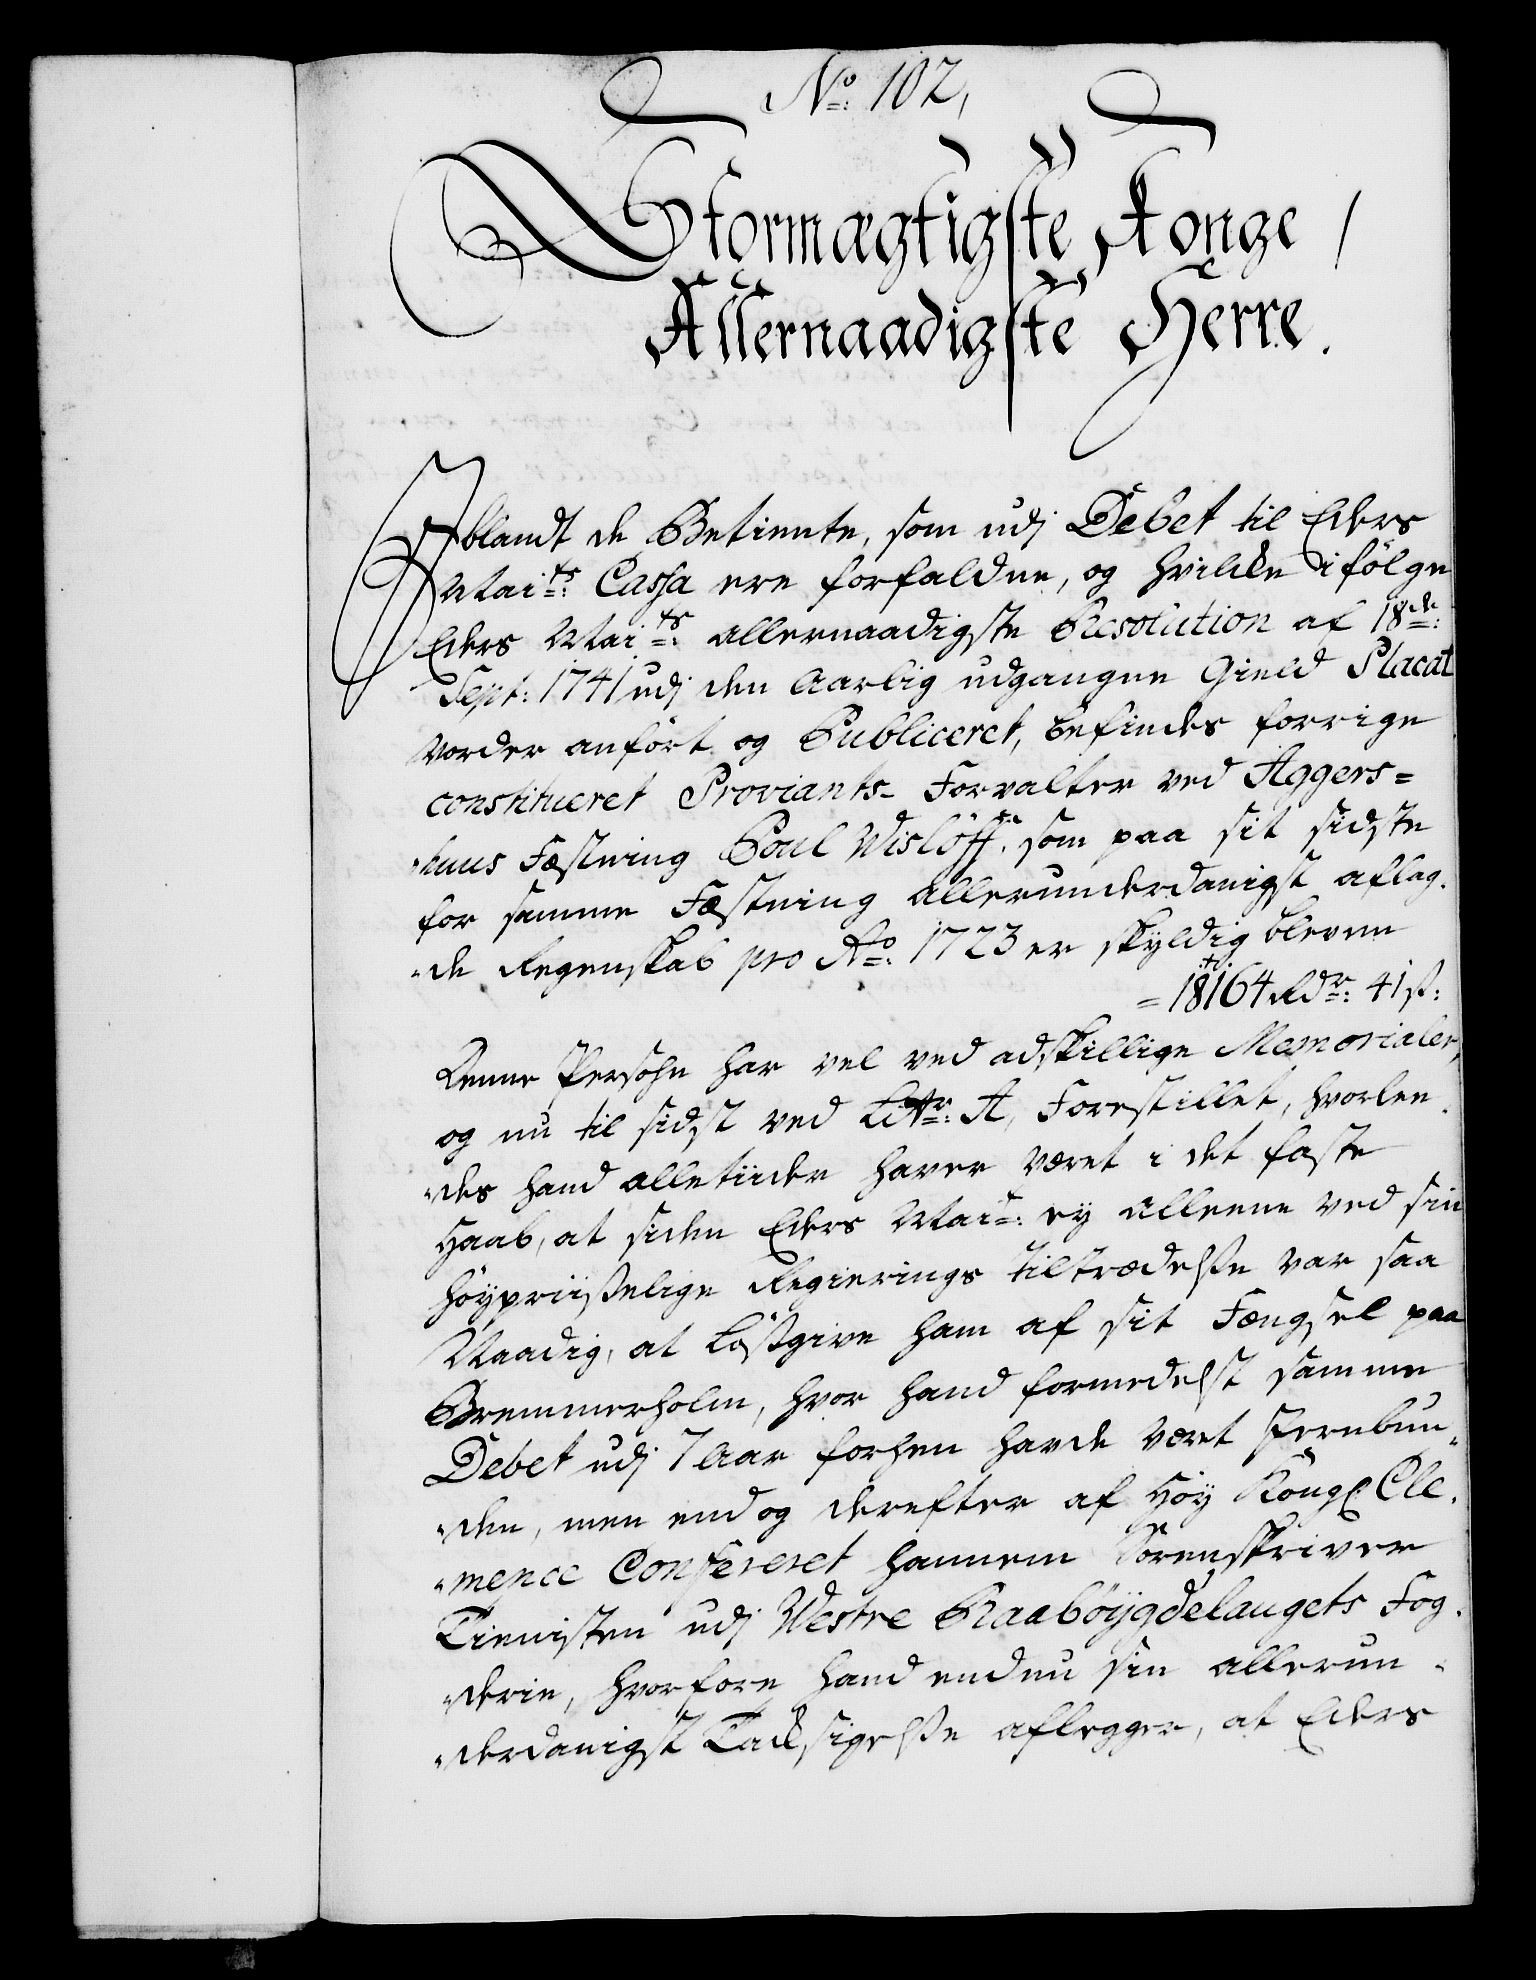 No: 102,
Stormægtigste Konge /
Allernaadigste Herre.
Iblandt de Betiente, som udj Debet til Eders
Maits: Cassa ere forfaldne, og hvilke i følge
Eders Maits: allernaadigste Resolution af 18de:
Sept: 1741 udj den aarlig udgangne Gield Placat
vorder anført og Publiceret, befindes forrige
constitueret Proviants- Forvalter ved Aggers=
huus Fæstning Poul Wisløff, som paa sit sidste
for samme Fæstning allerunderdanigst aflag-
de Regenskab pro Ao: 1723 er skyldig bleven
= 18164 Rdr: 41 s:
Denne Persohn har vel ved adskillige Memorialer,
og nu til sidst ved Littr: A, Forestillet, hvorlen-
des hand alletiider haver været i det faste
Haab, at siden Eders Mait: ey alleene ved sin
høypriisselige Regierings tiltrædelsse var saa
Naadig, at løssgive ham af sit Fængsel paa
Bremmerholm, hvor hand formedelst samme
Debet udj 7 Aar forhen havde været Jernbun-
den, men end og derefter af Høy Kongl: Cle-
mence Confereret hannem Sorenskriver
Tienisten udj Westre Raabøygdelaugets Fog-
derie, hvorfore hand endnu sin allerun-
derdanigst Tacksigelsse aflegger, at Eders